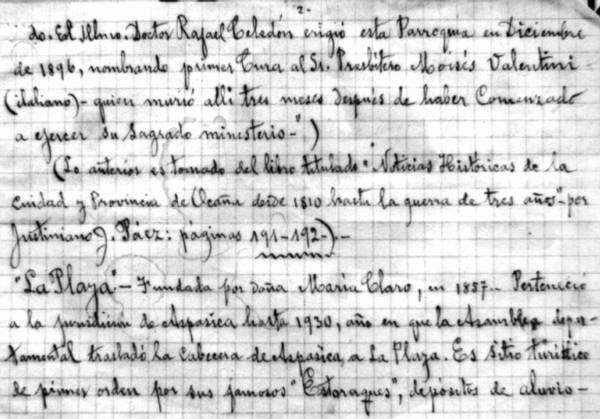 2.-
do. El Illmo. Doctor Rafael Celedón erigió esta Parroquia en Diciembre
de 1896, nombrando primer Cura al Sr. Presbítero Moisés Valentini
(italiano)- quien murió allí tres meses después de haber Comenzado
a ejercer su sagrado ministerio-")
(Lo anterior es tomado del libro titulado "Noticias Históricas de la
Ciudad y Provincia de Ocaña desde 1810 hasta la guerra de tres años"-por
Justiniano J. Páez: páginas 191-192-).-
"La Playa"- Fundada por doña María Claro, en 1857.- Perteneció
a la jurisdicción de Aspasica hasta 1930, año en que la Asamblea depar-
tamental trasladó la cabecera de Aspasica a La Playa. Es sitio turístico
de primer orden por sus famosos "Estoraques", depósitos de aluvio-